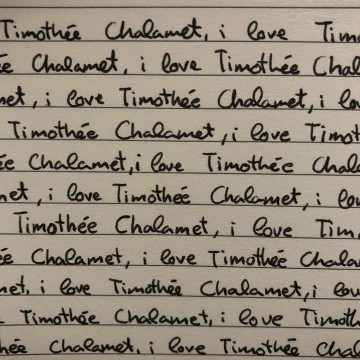 Timothée Chalamet, i love Timo
ée Chalamet, i love Timothée Chal
met, i love Timothée Chalamet, i lo
Timothée Chalamet, i love Timot
ée Chalamet, i love Timothée Chala
met, i love Timothée Chalamet, i lov
Timothée Chalamet, i love Tim
ée Chalamet, i love Timothée Chalam
met, i love Timothée Chalamet, i love
Timothée Chalamet, i love Timoth
thée Chalamet, i love Timothée Chal